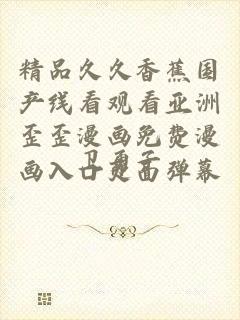 精品久久香蕉国
产线看观看亚洲
歪歪漫画免费漫
画入口页面弹幕